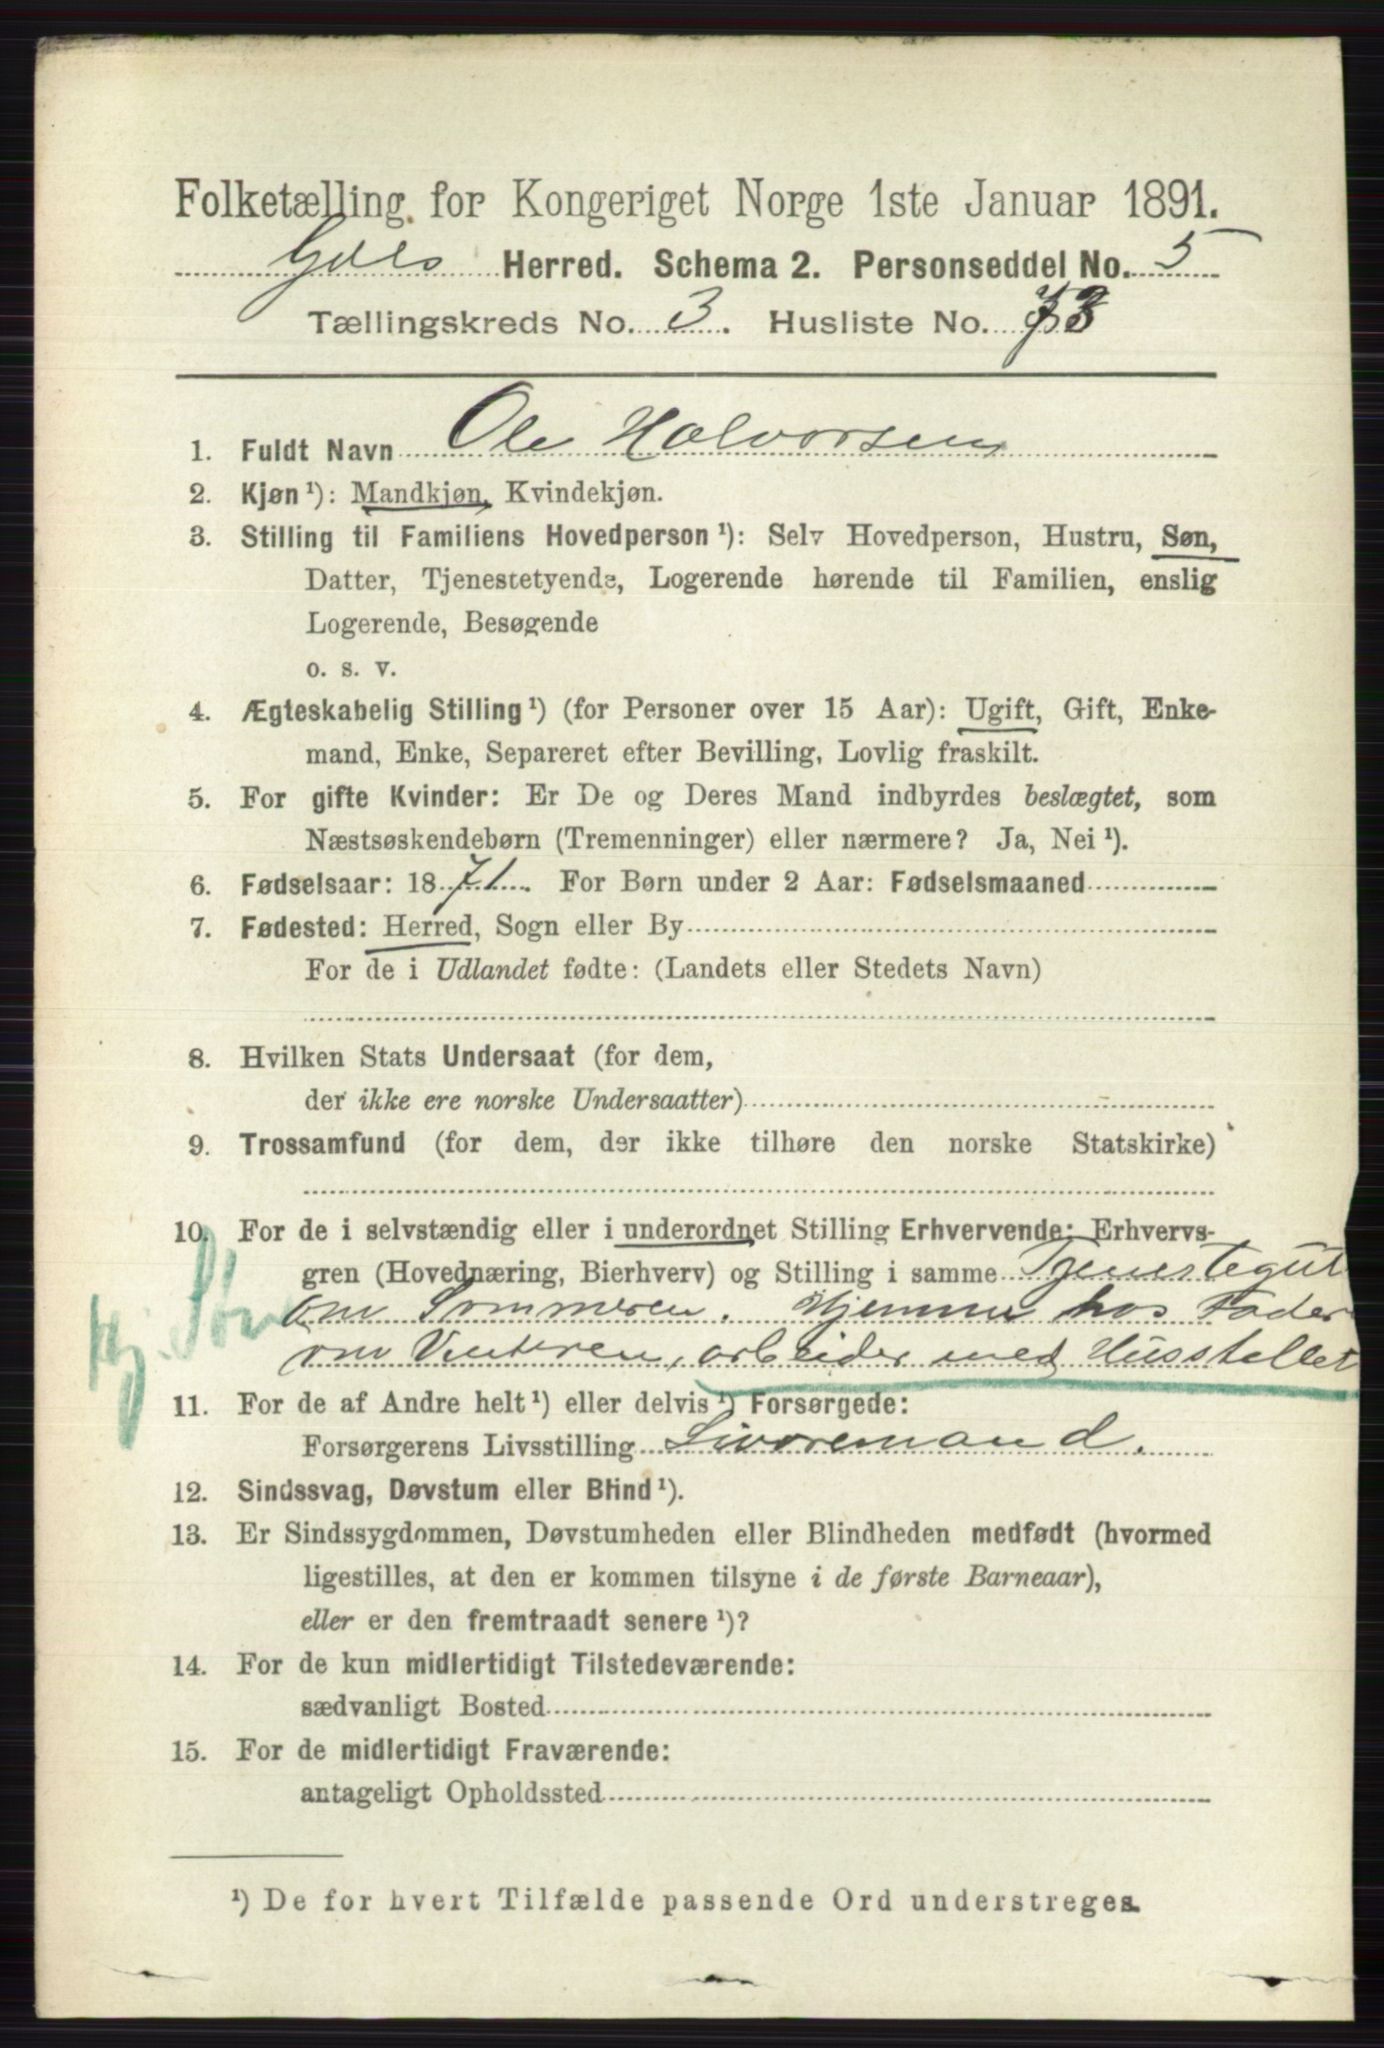 Folketælling for Kongeriget Norge 1ste Januar 1891.
Gols Herred. Schema 2. Personseddel No. 5
Tællingskreds No. 3. Husliste No. 73
1. Fuldt Navn Ole Halvorsen
2. Kjøn ¹): Mandkjøn, Kvindekjøn.
3. Stilling til Familiens Hovedperson ¹): Selv Hovedperson, Hustru, Søn,
Datter, Tjenestetyende, Logerende hørende til Familien, enslig
Logerende, Besøgende
o. s. v.
4. Ægteskabelig Stilling ¹) (for Personer over 15 Aar): Ugift, Gift, Enke-
mand, Enke, Separeret efter Bevilling, Lovlig fraskilt.
5. For gifte Kvinder: Er De og Deres Mand indbyrdes beslægtet, som
Næstsøskendebørn (Tremenninger) eller nærmere? Ja, Nei ¹).
6. Fødselsaar: 1871. For Børn under 2 Aar: Fødselsmaaned
7. Fødested: Herred, Sogn eller By
For de i Udlandet fødte: (Landets eller Stedets Navn)
8. Hvilken Stats Undersaat (for dem,
der ikke ere norske Undersaatter)
9. Trossamfund (for dem, der ikke tilhøre den norske Statskirke)
10. For de i selvstændig eller i underordnet Stilling Erhvervende: Erhvervs-
gren (Hovednæring, Bierhverv) og Stilling i samme Tjenestegut
hj. Søn om Sommeren. Hjemme hos Fader
om Vinteren, arbeider med Husstellet
11. For de af Andre helt ¹) eller delvis ¹) Forsørgede:
Forsørgerens Livsstilling
12. Sindssvag, Døvstum eller Blind ¹).
13. Er Sindssygdommen, Døvstumheden eller Blindheden medfødt (hvormed
ligestilles, at den er kommen tilsyne i de første Barneaar),
eller er den fremtraadt senere ¹)?
14. For de kun midlertidigt Tilstedeværende:
sædvanligt Bosted
15. For de midlertidigt Fraværende:
antageligt Opholdssted
¹) De for hvert Tilfælde passende Ord understreges.